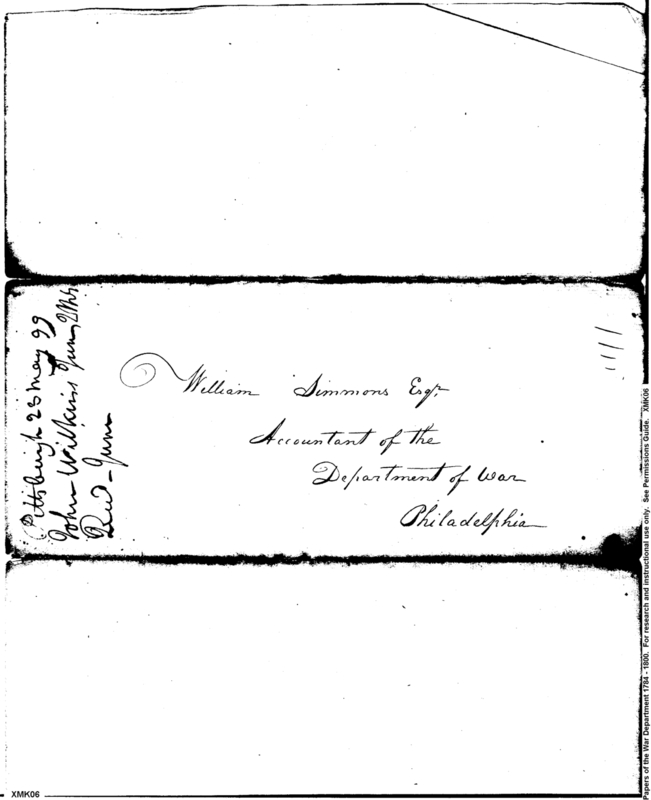 Pittsburgh 23 May 99
John Wilkins Junr
Recd - June
William Simmons Esqr.
Accountant of the
Department of War
Philadelphia
Papers of the War Department 1784 - 1800. For research and instructional use only. See Permissions Guide. XMK06
XMK06